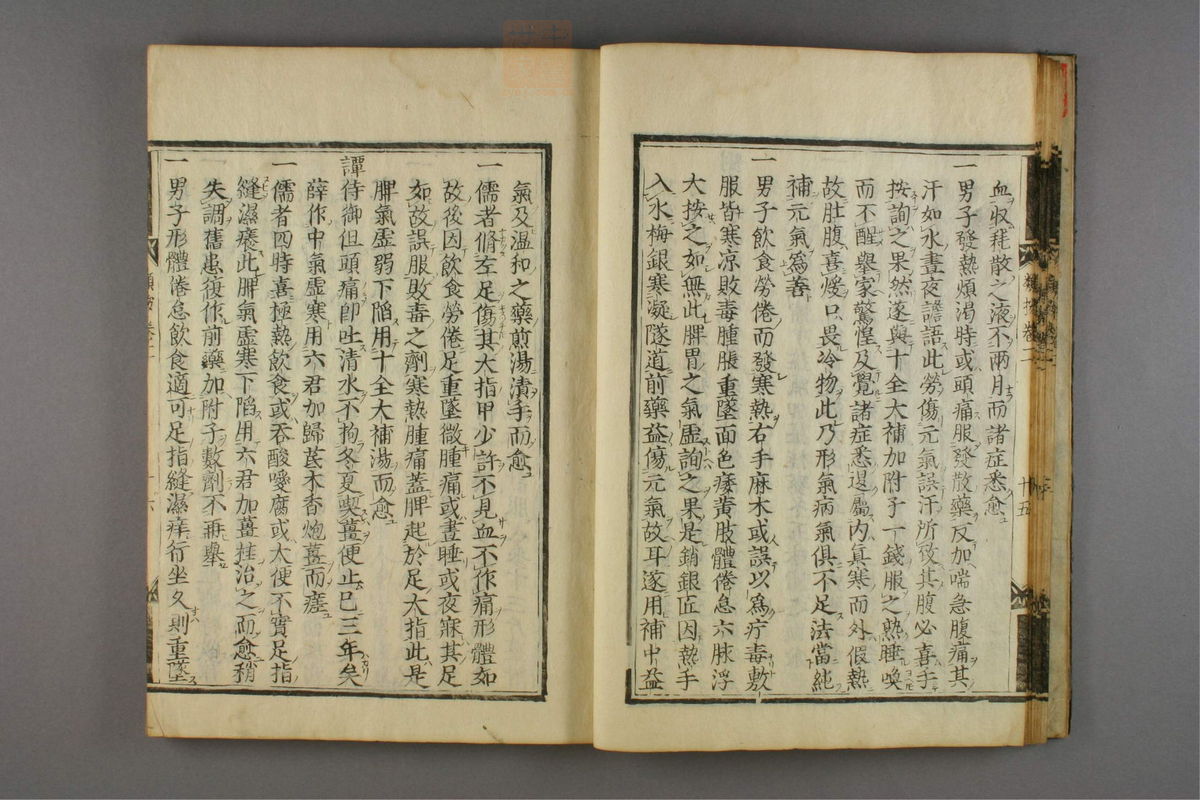 血収耗散之液不兩月而諸症悉愈
一男子發熱煩渴時或頭痛服發散藥反加喘急腹痛其
汗如水晝夜譫語此勞傷元氣誤汗所致其腹必喜手
按詢之果然遂與十全大補加附子一錢服之熱睡喚
而不醒舉家驚惶及覺諸症悉退屬內真寒而外假熱
故肚腹喜煖口畏冷物此乃形氣病氣俱不足法當純
補元氣爲善
一男子飲食勞倦而發寒熱右手麻木或誤以爲疔毒敷
服皆寒凉敗毒腫脹重墜面色痿黃肢體倦怠六脉浮
大按之如無此脾胃之氣虛詢之果是銷銀匠因熱手
入水梅銀寒凝隧道前藥益傷元氣故耳遂用補中益
十五
氣及溫和之藥煎湯漬手而愈
一儒者脩左足傷其大指甲少許不見血不作痛形體如
故後因飲食勞倦足重墜微腫痛或晝睡或夜寐其足
如故誤服敗毒之劑寒熱腫痛蓋脾起於足大指此是
脾氣虛弱下陷用十全大補湯而愈
譚侍御但頭痛即吐清水不拘冬夏喫薑便止已三年矣
薛作中氣虛寒用六君加歸芪木香炮薑而瘥
一儒者四時喜極熱飲食或吞酸嗳腐或大便不實足指
縫濕癢此脾氣虛寒下陷用六君加薑桂治之而愈稍
失調舊患復作前藥加附子數劑不再舉
一男子形體倦怠飲食適可足指縫濕痒行坐久則重墜